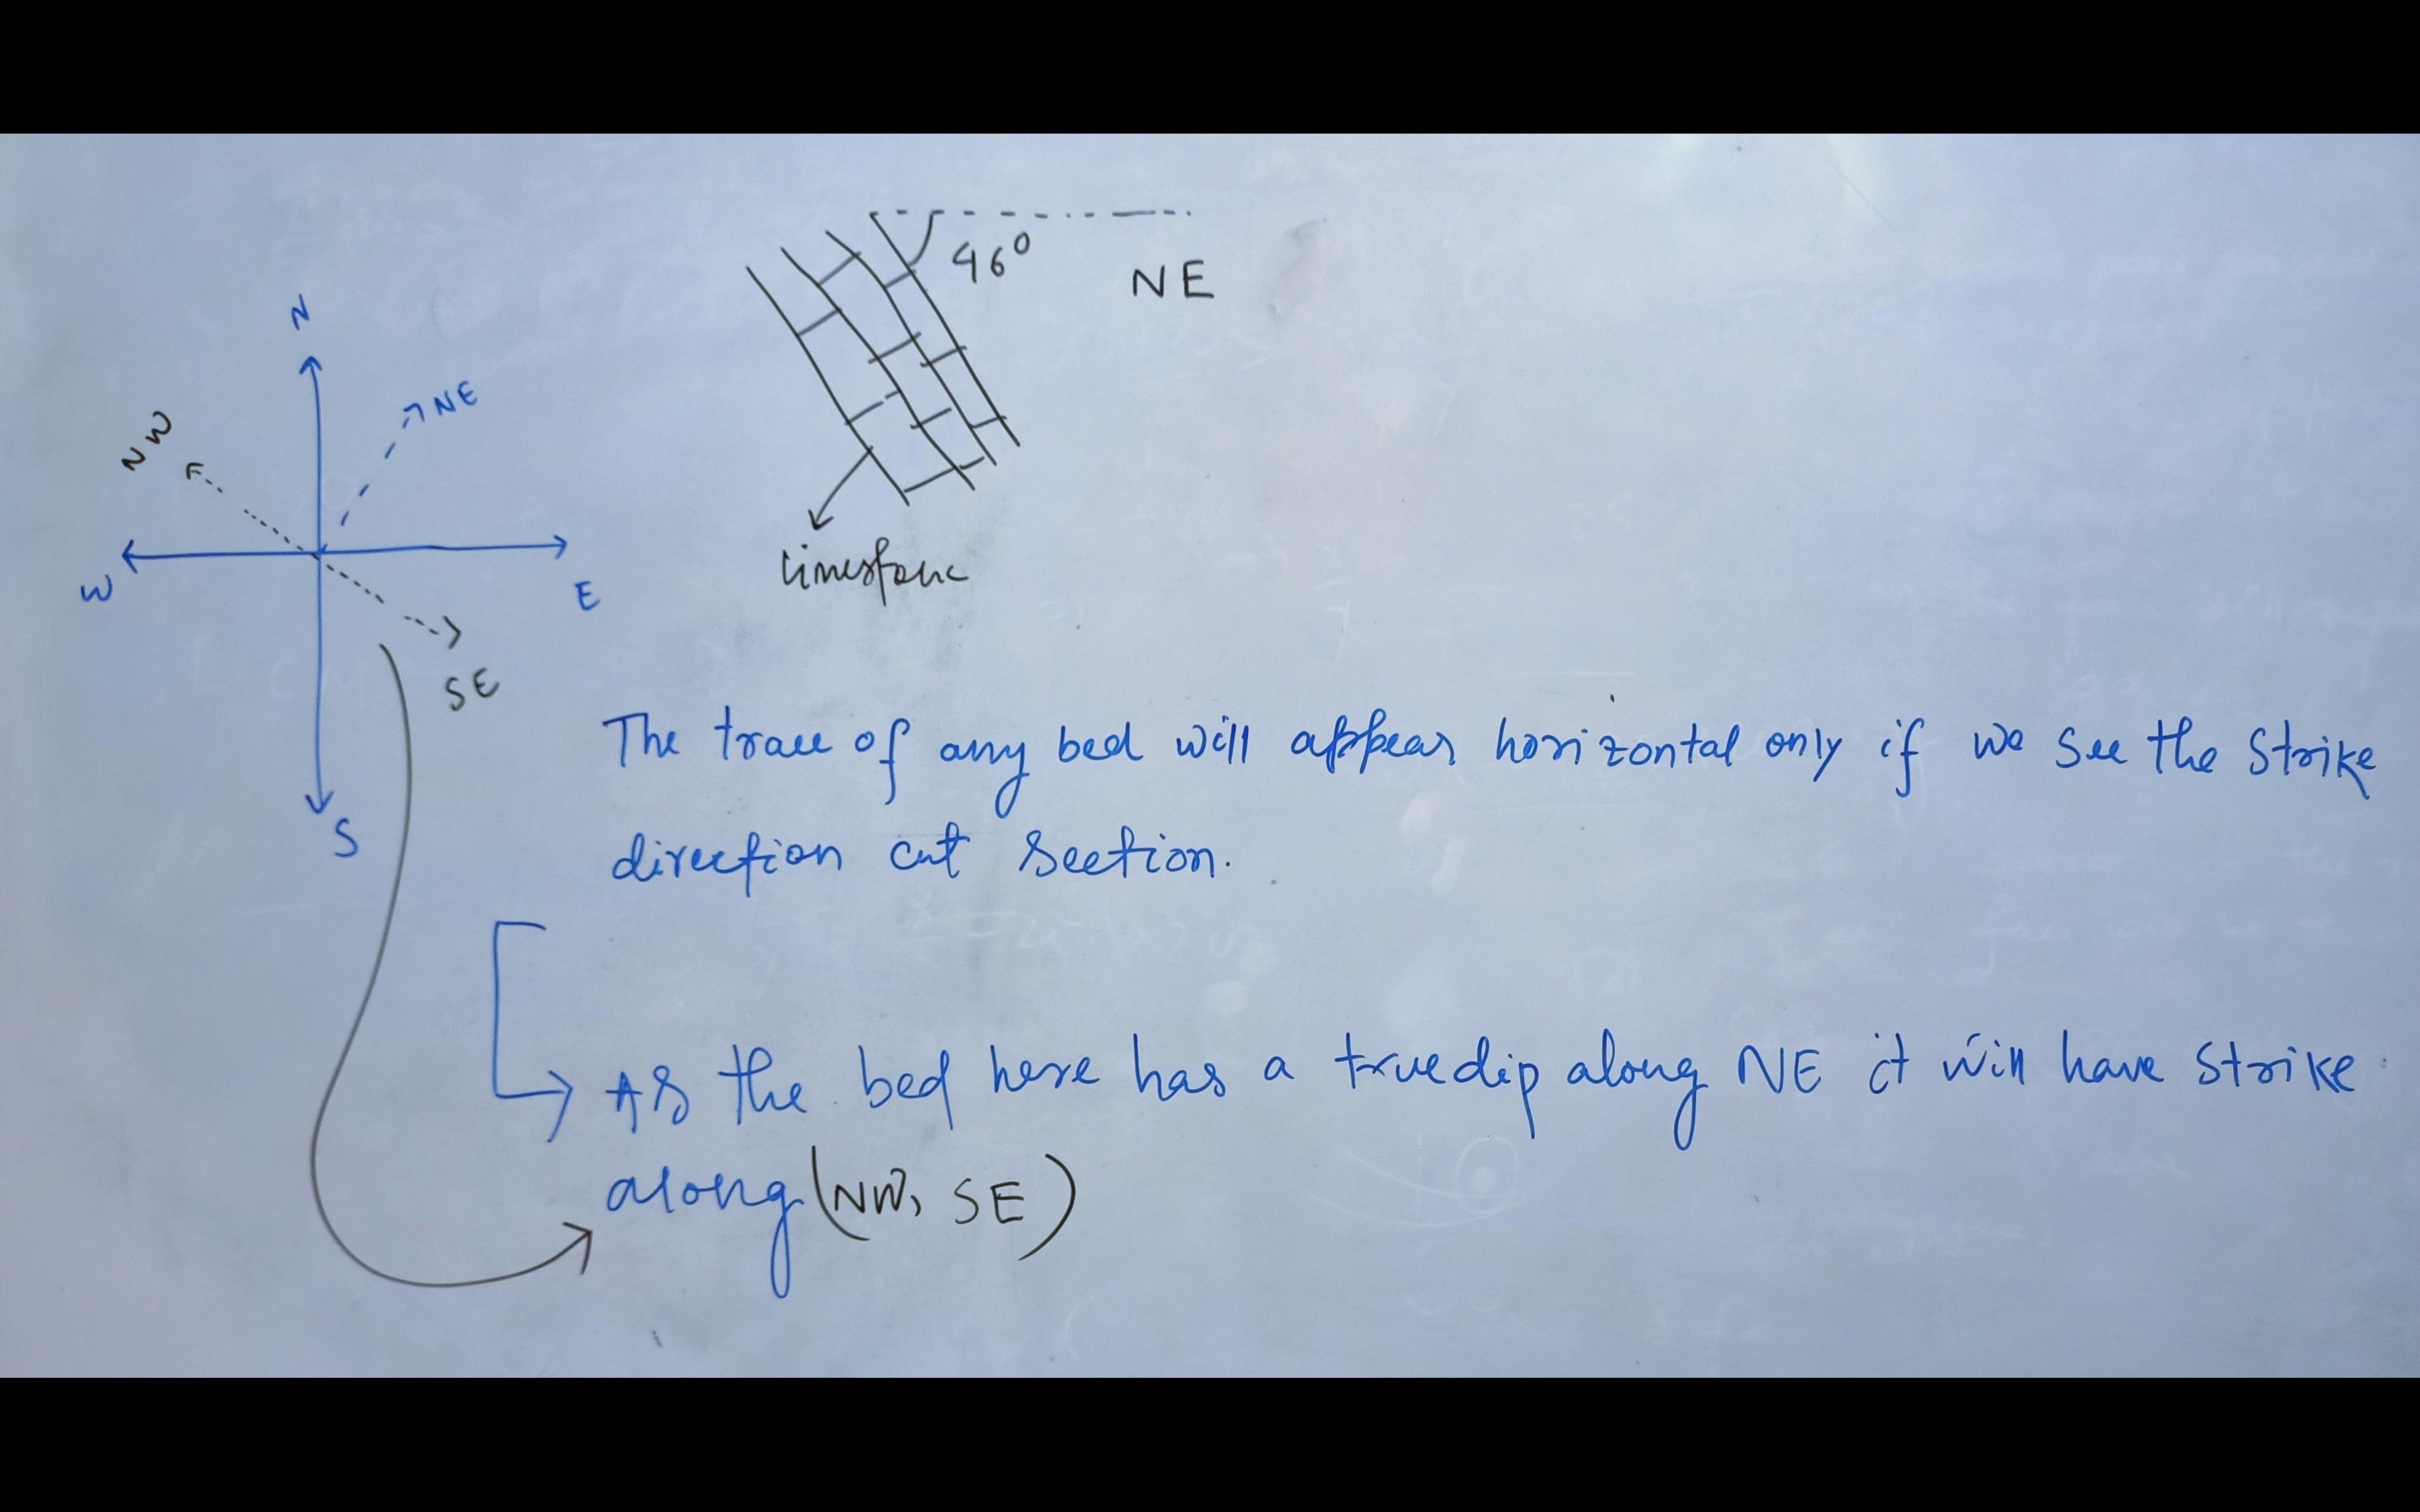 N
NE
NW
W
E
SE
S
46°
NE
limestone
The trace of any bed will appear horizontal only if we see the strike
direction cut section.
As the bed here has a true dip along NE it will have strike
along (NW, SE)